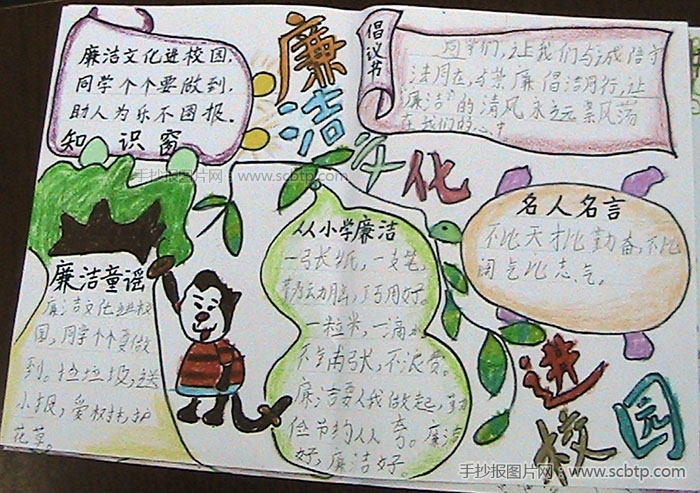 廉洁文化进校园，
同学个个要做到，
助人为乐不图报。
知识窗
廉洁
文化
进
校园
倡议书
同学们，让我们与诚陪守
法同在，与崇廉倡洁同行，让
"廉洁"的清风永远
在我们的心中
手抄报图片网：www.scbtp.com
名人名言
不比天才比勤奋，不比
阔气比志气。
从小学廉洁
一张纸，一支笔，
勤动脑，巧用好。
一粒米，一滴水
不铺张，不浪费。
廉洁要从我做起，勤
俭节约人人夸。廉洁
好，廉洁好。
廉洁童谣
廉洁文化进校
园，同学个个要做
到。捡垃圾，送
小报，爱树木护
花草。
手抄报图片网：www.scbtp.com